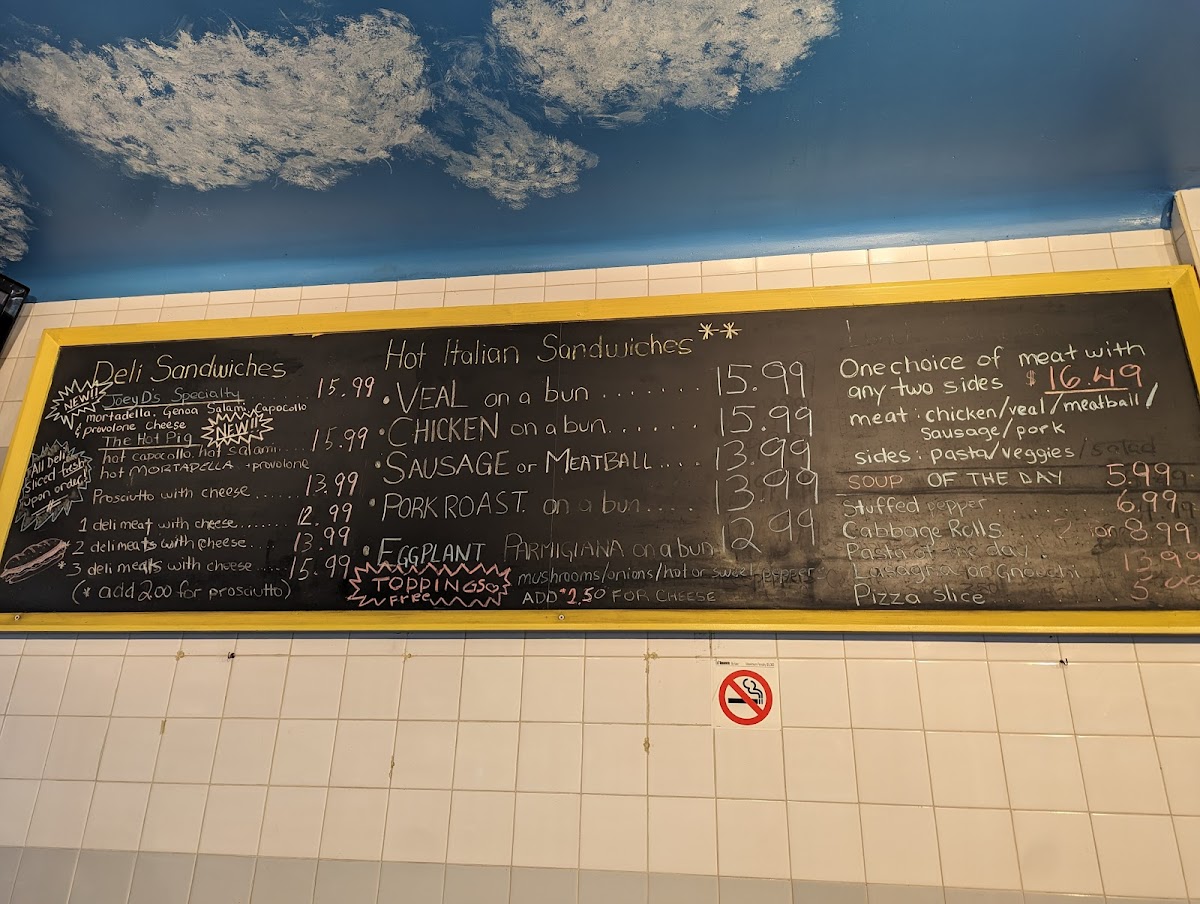 Deli Sandwiches
NEW!!
JoeyD's Specialty 15.99
mortadella, Genoa Salami, Capocollo
& provolone cheese
The Hot Pig NEW!! 15.99
hot capocollo, hot salami
hot MORTADELLA + provolone
All Deli
Sliced fresh
upon order!
Prosciutto with cheese 13.99
1 deli meat with cheese 12.99
* 2 deli meats with cheese 13.99
* 3 deli meats with cheese 15.99
(* add 2.00 for prosciutto)
Hot Italian Sandwiches **
• VEAL on a bun 15.99
• CHICKEN on a bun 15.99
• SAUSAGE or MEATBALL 13.99
• PORK ROAST on a bun 13.99
• EGGPLANT PARMIGIANA on a bun 12.99
TOPPINGS
FREE
mushrooms/onions/hot or sweet peppers
ADD $1.50 FOR CHEESE
One choice of meat with
any two sides $16.49
meat: chicken/veal/meatball/
Sausage/pork
sides: pasta/veggies/salad
SOUP OF THE DAY 5.99
Stuffed pepper 6.99
Cabbage Rolls 8.99
Pasta of the day
Lasagna or Gnocchi 13.99
Pizza Slice